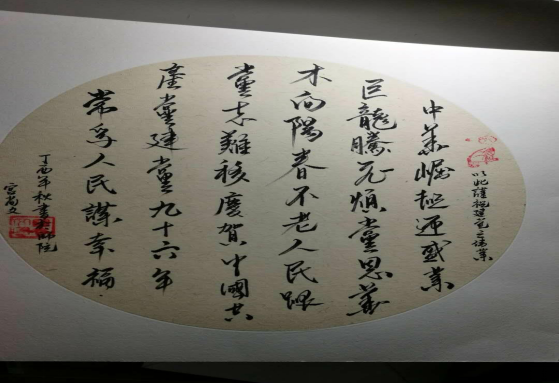 以此謹祝建党之業
中華崛起迎盛業
巨龍騰飞頌黨恩萬
木向陽春不老人民跟
黨志難移慶賀中國共
產黨建黨九十六年
常為人民謀幸福
丁酉年秋書院